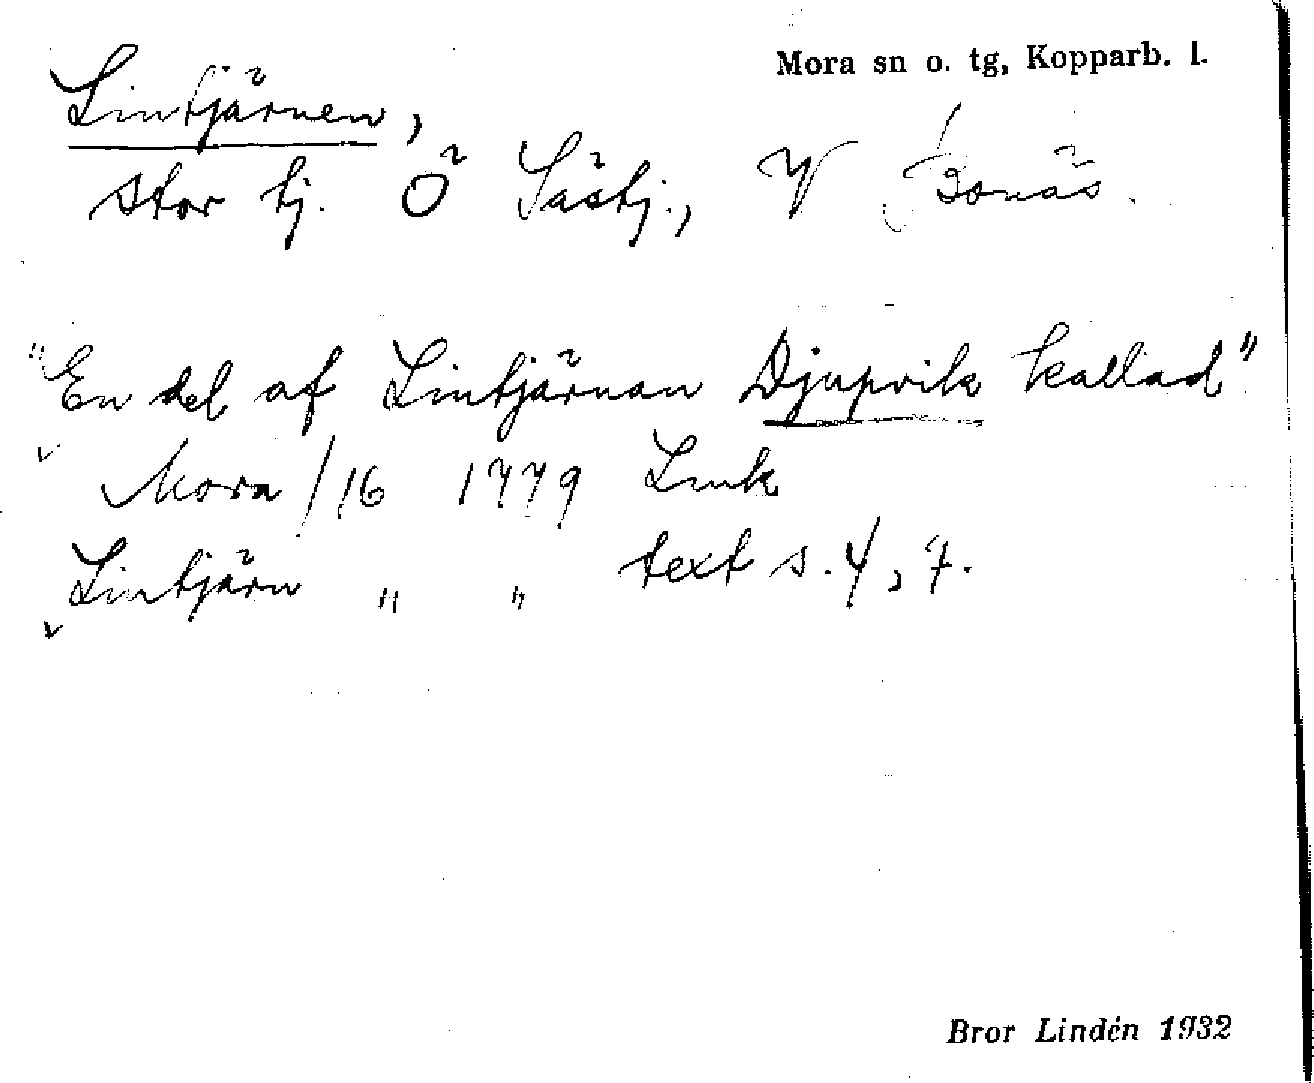 Mora sn o. tg, Kopparb. l.
Lintjärnen,
stor tj. Ö Sästj., V Bonäs.
"En del af Lintjärnan Djupvik kallad"
Mora/16 1779 Lmk
Lintjärn " " text s. 4, 7.
Bror Lindén 1932